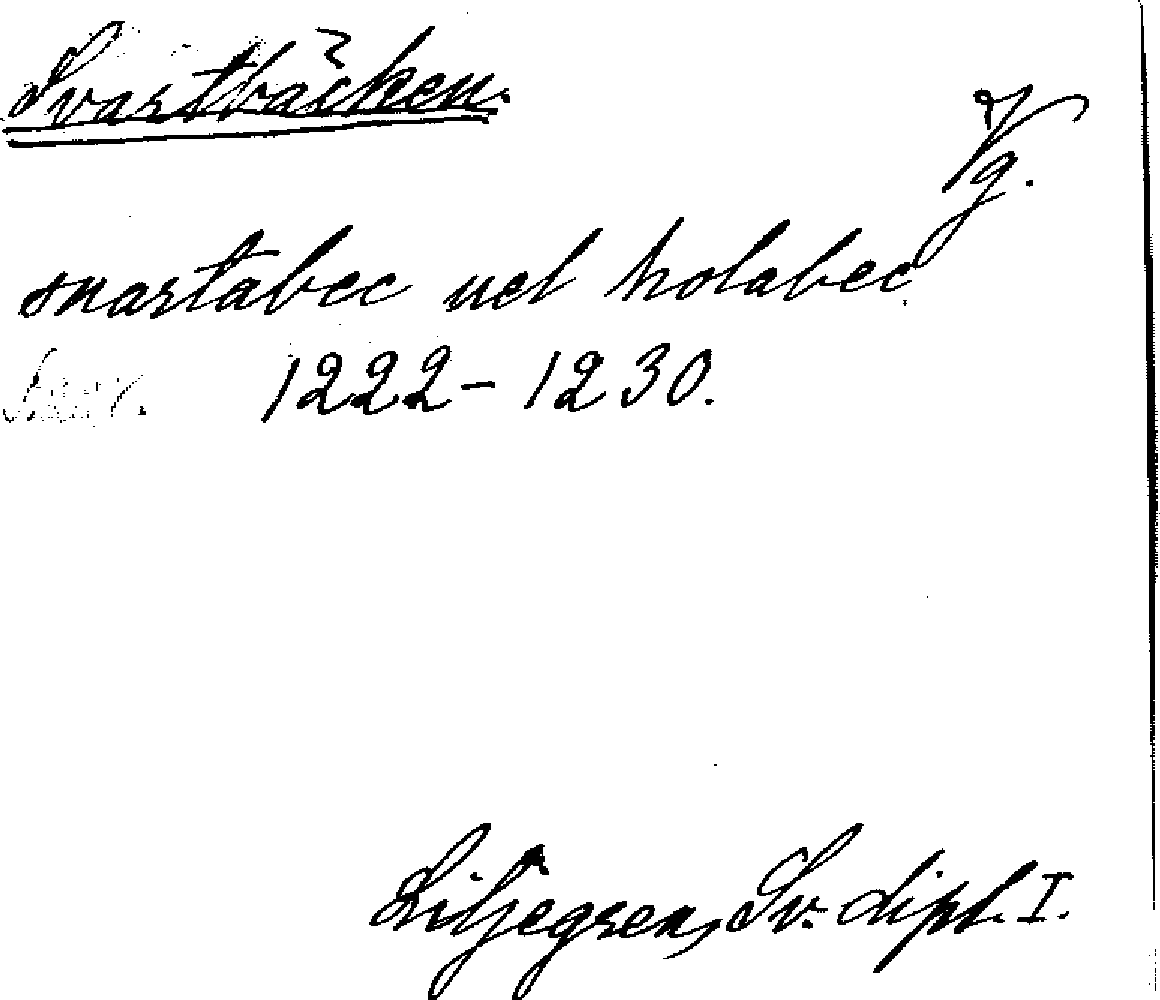 Svartbäcken.
Vg.
suartabec uel holabec
1222-1230.
Liljegren, Sv. dipl. I.